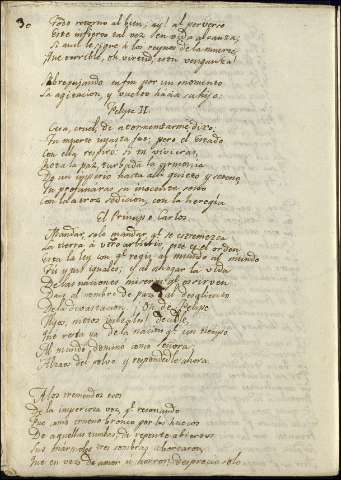 30
Todo retorno al bien; ay! al perverso
Este infierno tal vez en vida alcanza;
Si aun le sigue à los reynos de la muerte,
Que terrible, oh virtud, es tu venganza!
Arrojando en fin por un momento
La agitacion, y vuelto hacia su hijo:
Felipe II.
Cesa, cruel, de atormentarme dixo,
Tu muerte injusta fue; pero el Estado
Con ella respiró: si tu vivieras,
Rota la paz, turbada la armonia
De un imperio hasta alli quieto y sereno,
Tu profanaras su inocente seno
Con la atroz sedicion, con la heregia
El Principe Carlos
Mandar, solo mandar, qe se estremezca
La tierra à vtro arbitrio, ese es el orden
Esta la ley con qe regir al mundo
Tu y tus iguales; y al ahogar la vida
De las naciones miseras qe os sirven
Dais el nombre de paz al desaliento
De la devastacion. Di de Felipe
Hijos, nietos imbeciles, decidle
Que resta ya de la nacion qe un tiempo
Al mundo dominó como señora;
Alzaos del polvo y respondedle ahora.
A los tremendos ecos
De la imperiosa voz, qe resonando
Fue como trueno bronco por los huecos
De aquellas tumbas, de repente abiertos
Sus marmoles tres sombras abortaron,
Que en vez de amor u horror, desprecio solo